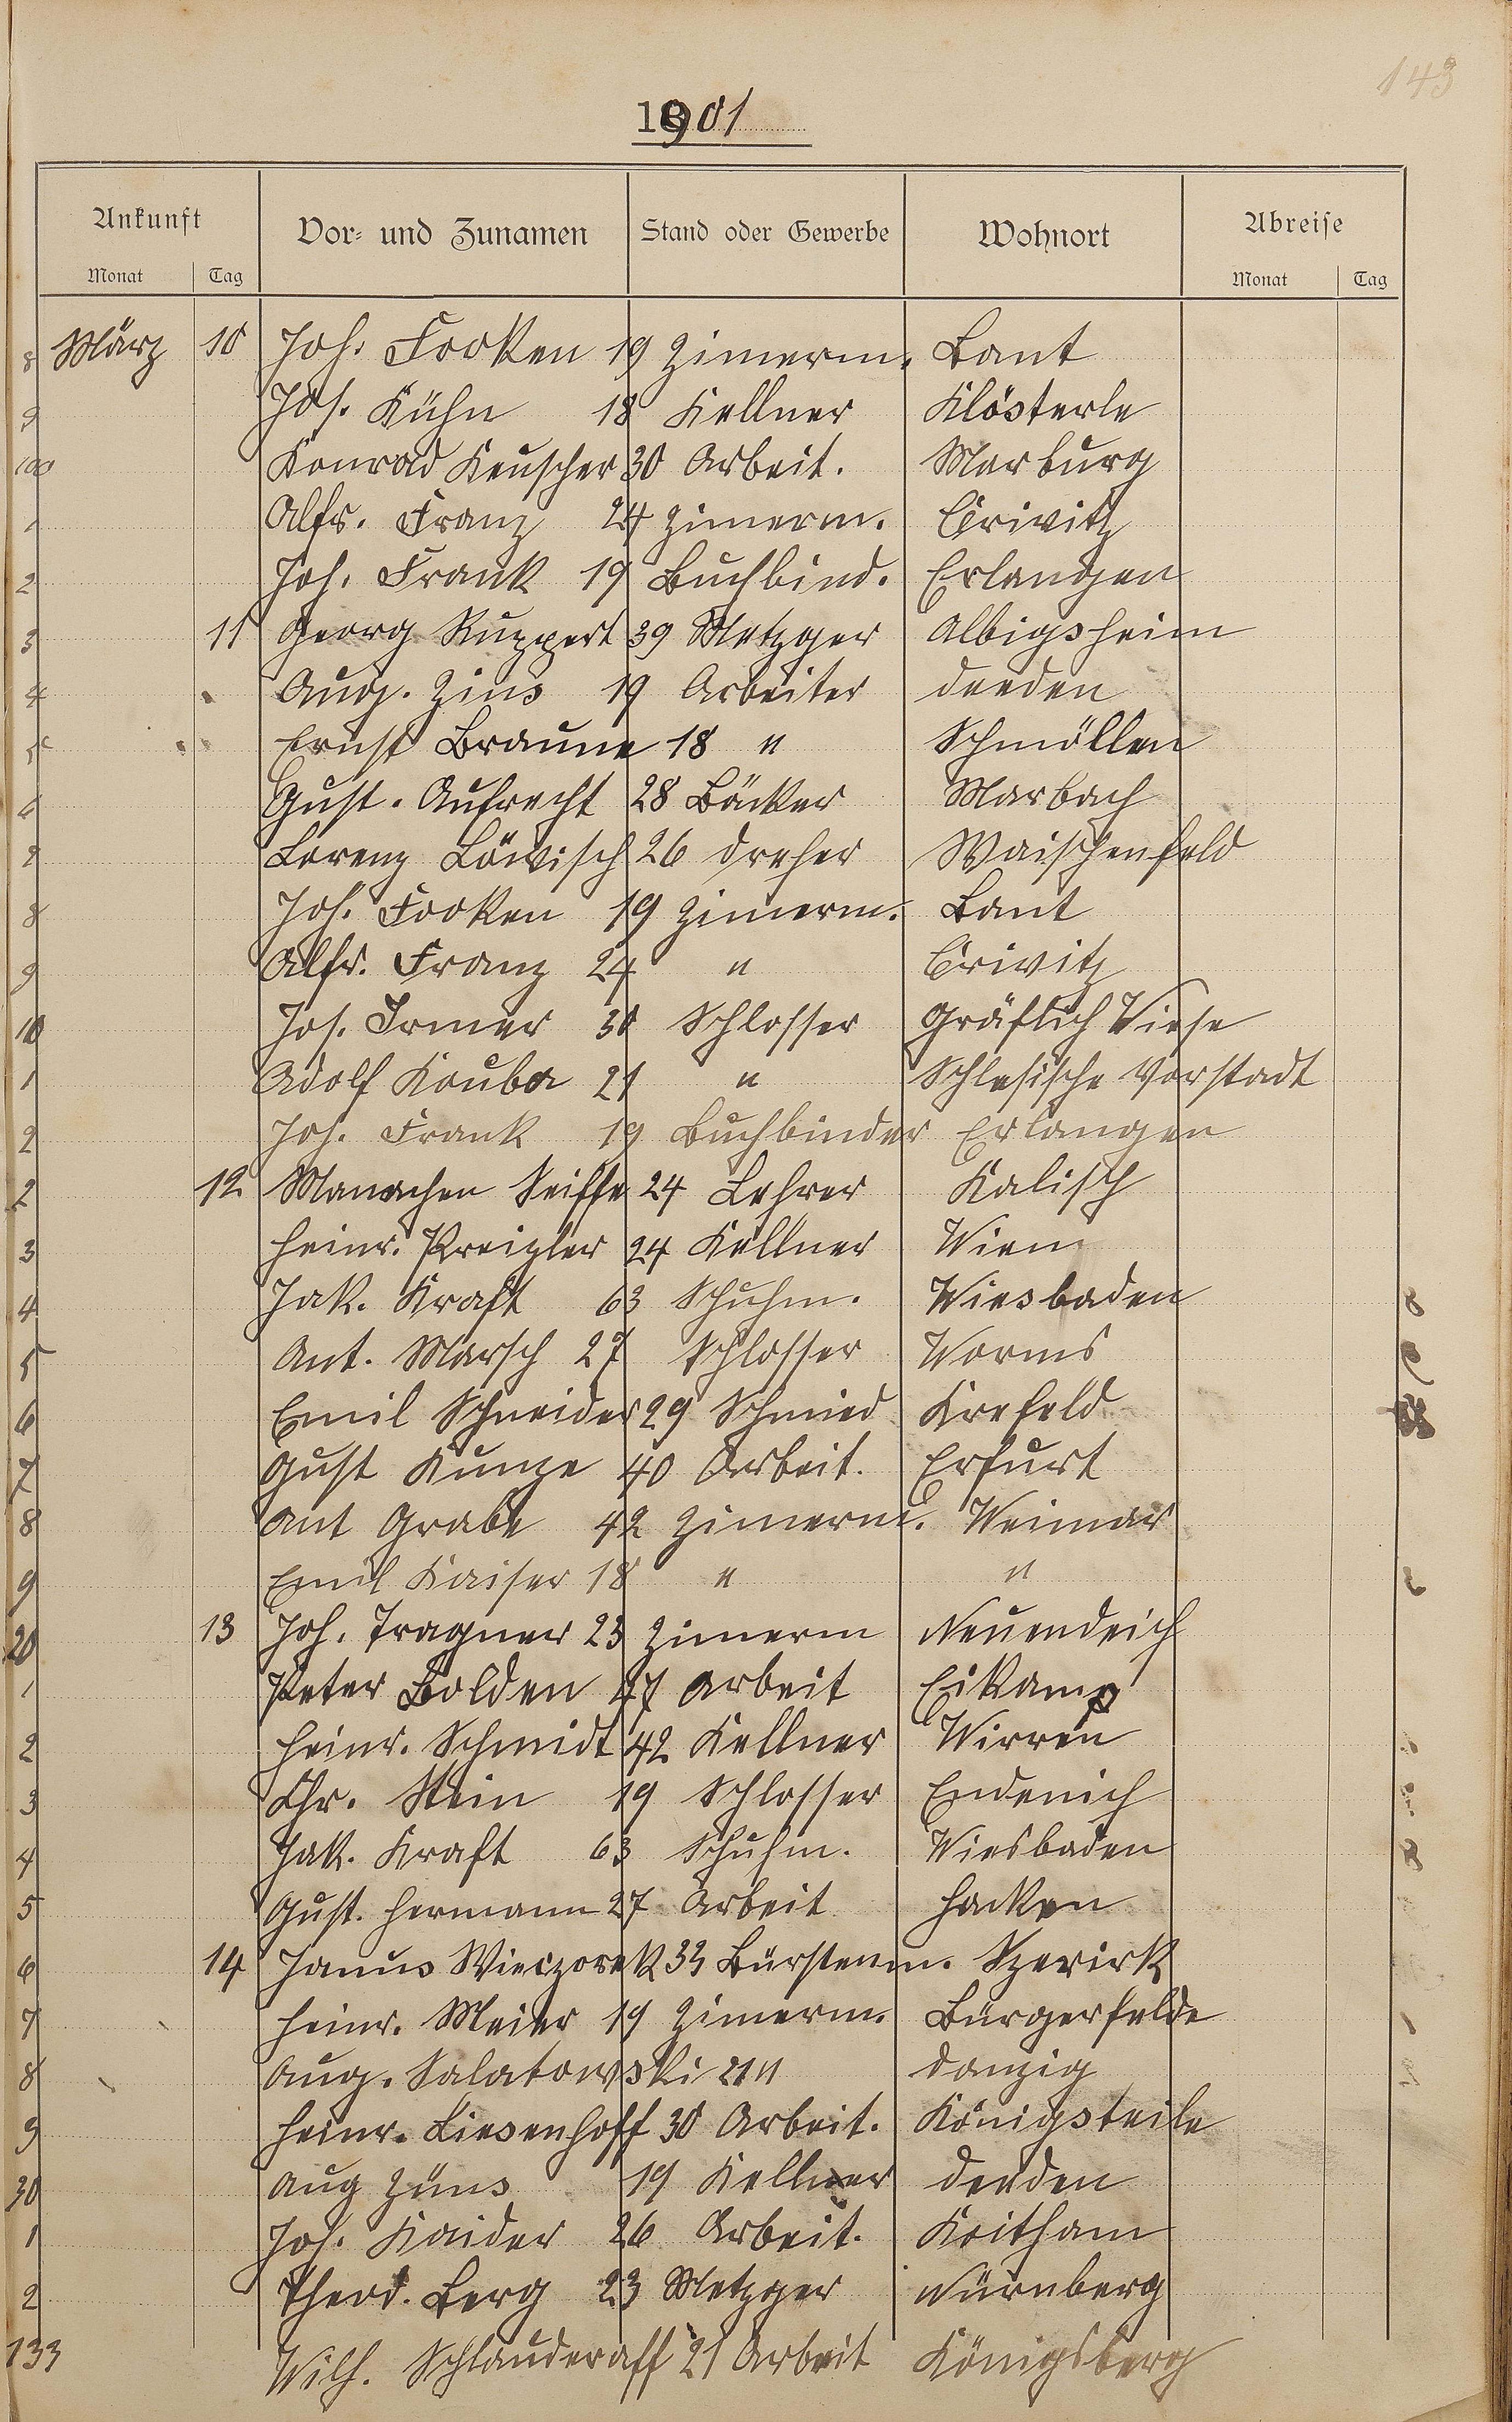 143
1901
Ankunft Vor- und Zunamen Stand oder Gewerbe Wohnort Abreise
Monat Tag Monat Tag
8 März 10 Joh. Fooken 19 Zimerm. Bant
9 Jos. Kühn 18 Kellner Klösterle
100 Konrad Keuscher 30 Arbeit. Marburg
1 Alfr. Franz 24 Zimerm. Crivitz
2 Joh. Frank 19 Buchbind. Erlangen
3 11 Georg Ruppert 39 Metzger Albigsheim
4 Aug. Zins 19 Arbeiter deeden
5 Ernst Braune 18 " Schmöllen
6 Gust. Aufrecht 28 Bäcker Marbach
7 Lorenz Löwisch 26 Dreher Waischenfeld
8 Joh. Fooken 19 Zimerm. Bant
9 Alfr. Franz 24 " Crivitz
10 Jos. Irmer 30 Schlosser Gräflich Wiese
1 Adolf Kouba 21 " Schlesische Vorstadt
2 Joh. Frank 19 Buchbinder Erlangen
2 12 Manachen Seiffe 24 Lehrer Kalisch
3 Heinr. Preizler 24 Kellner Wien
4 Jak. Kraft 63 Schuhm. Wiesbaden
5 Ant. Marsch 27 Schlosser Worms
6 Emil Schneider 29 Schmied Krefeld
7 Gust Kunze 40 Arbeit. Erfurt
8 Ant Grabe 42 Zimerm. Weimar
9 Emil Kaiser 18 " "
20 13 Joh. Tragner 23 Zimerm Neuendeich
1 Peter Bolden 47 Arbeit Eikamp
2 Heinr. Schmidt 42 Kellner Wirren
3 Chr. Stein 19 Schlosser Endenich
4 Jak. Kraft 63 Schuhm. Wiesbaden
5 Gust. Hermann 27 Arbeit Hacken
6 14 Janus Wieczorek 33 Bürstenm. Szerirk
7 Heinr. Meier 19 Zimerm. Bürgerfelde
8 Aug. Salatowski 21 " Danzig
9 Heinr. Liesenhoff 30 Arbeit. Königsteile
30 Aug Züns 19 Kellner deeden
1 Joh. Kaider 26 Arbeit. Koitham
2 Theod. Berg 23 Metzger Nürnberg
133 Wilh. Schlauderaff 21 Arbeit Königsberg